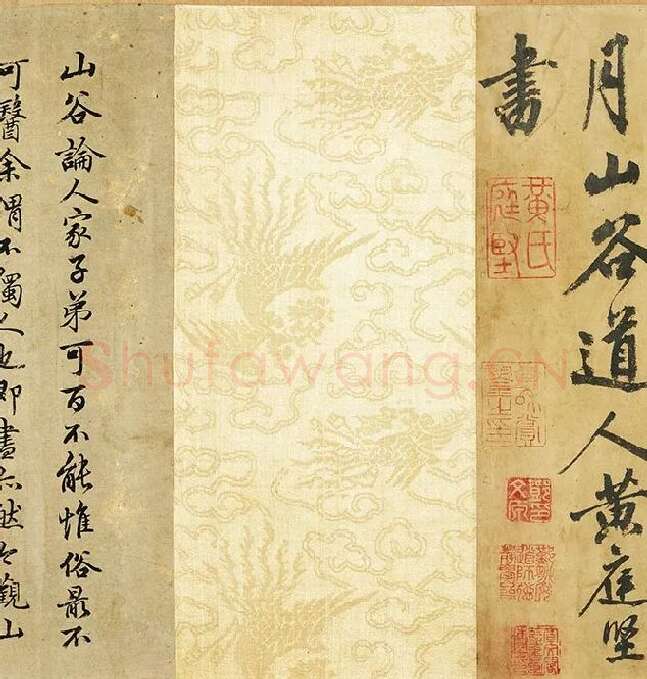 月山谷道人黃庭堅
書
黃氏庭堅
山谷論人家子弟可百不能惟俗最不
可醫余謂不獨人也即書亦然今觀山
Shufawang.CN